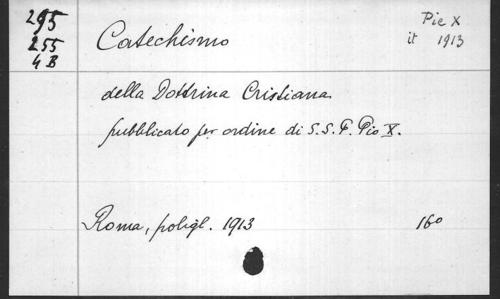 295
255
4 B
Catechismo
Pie X
it 1913
della Dottrina Cristiana
pubblicato per ordine di S. S. P. Pio X.
Roma, poligl. 1913
16º